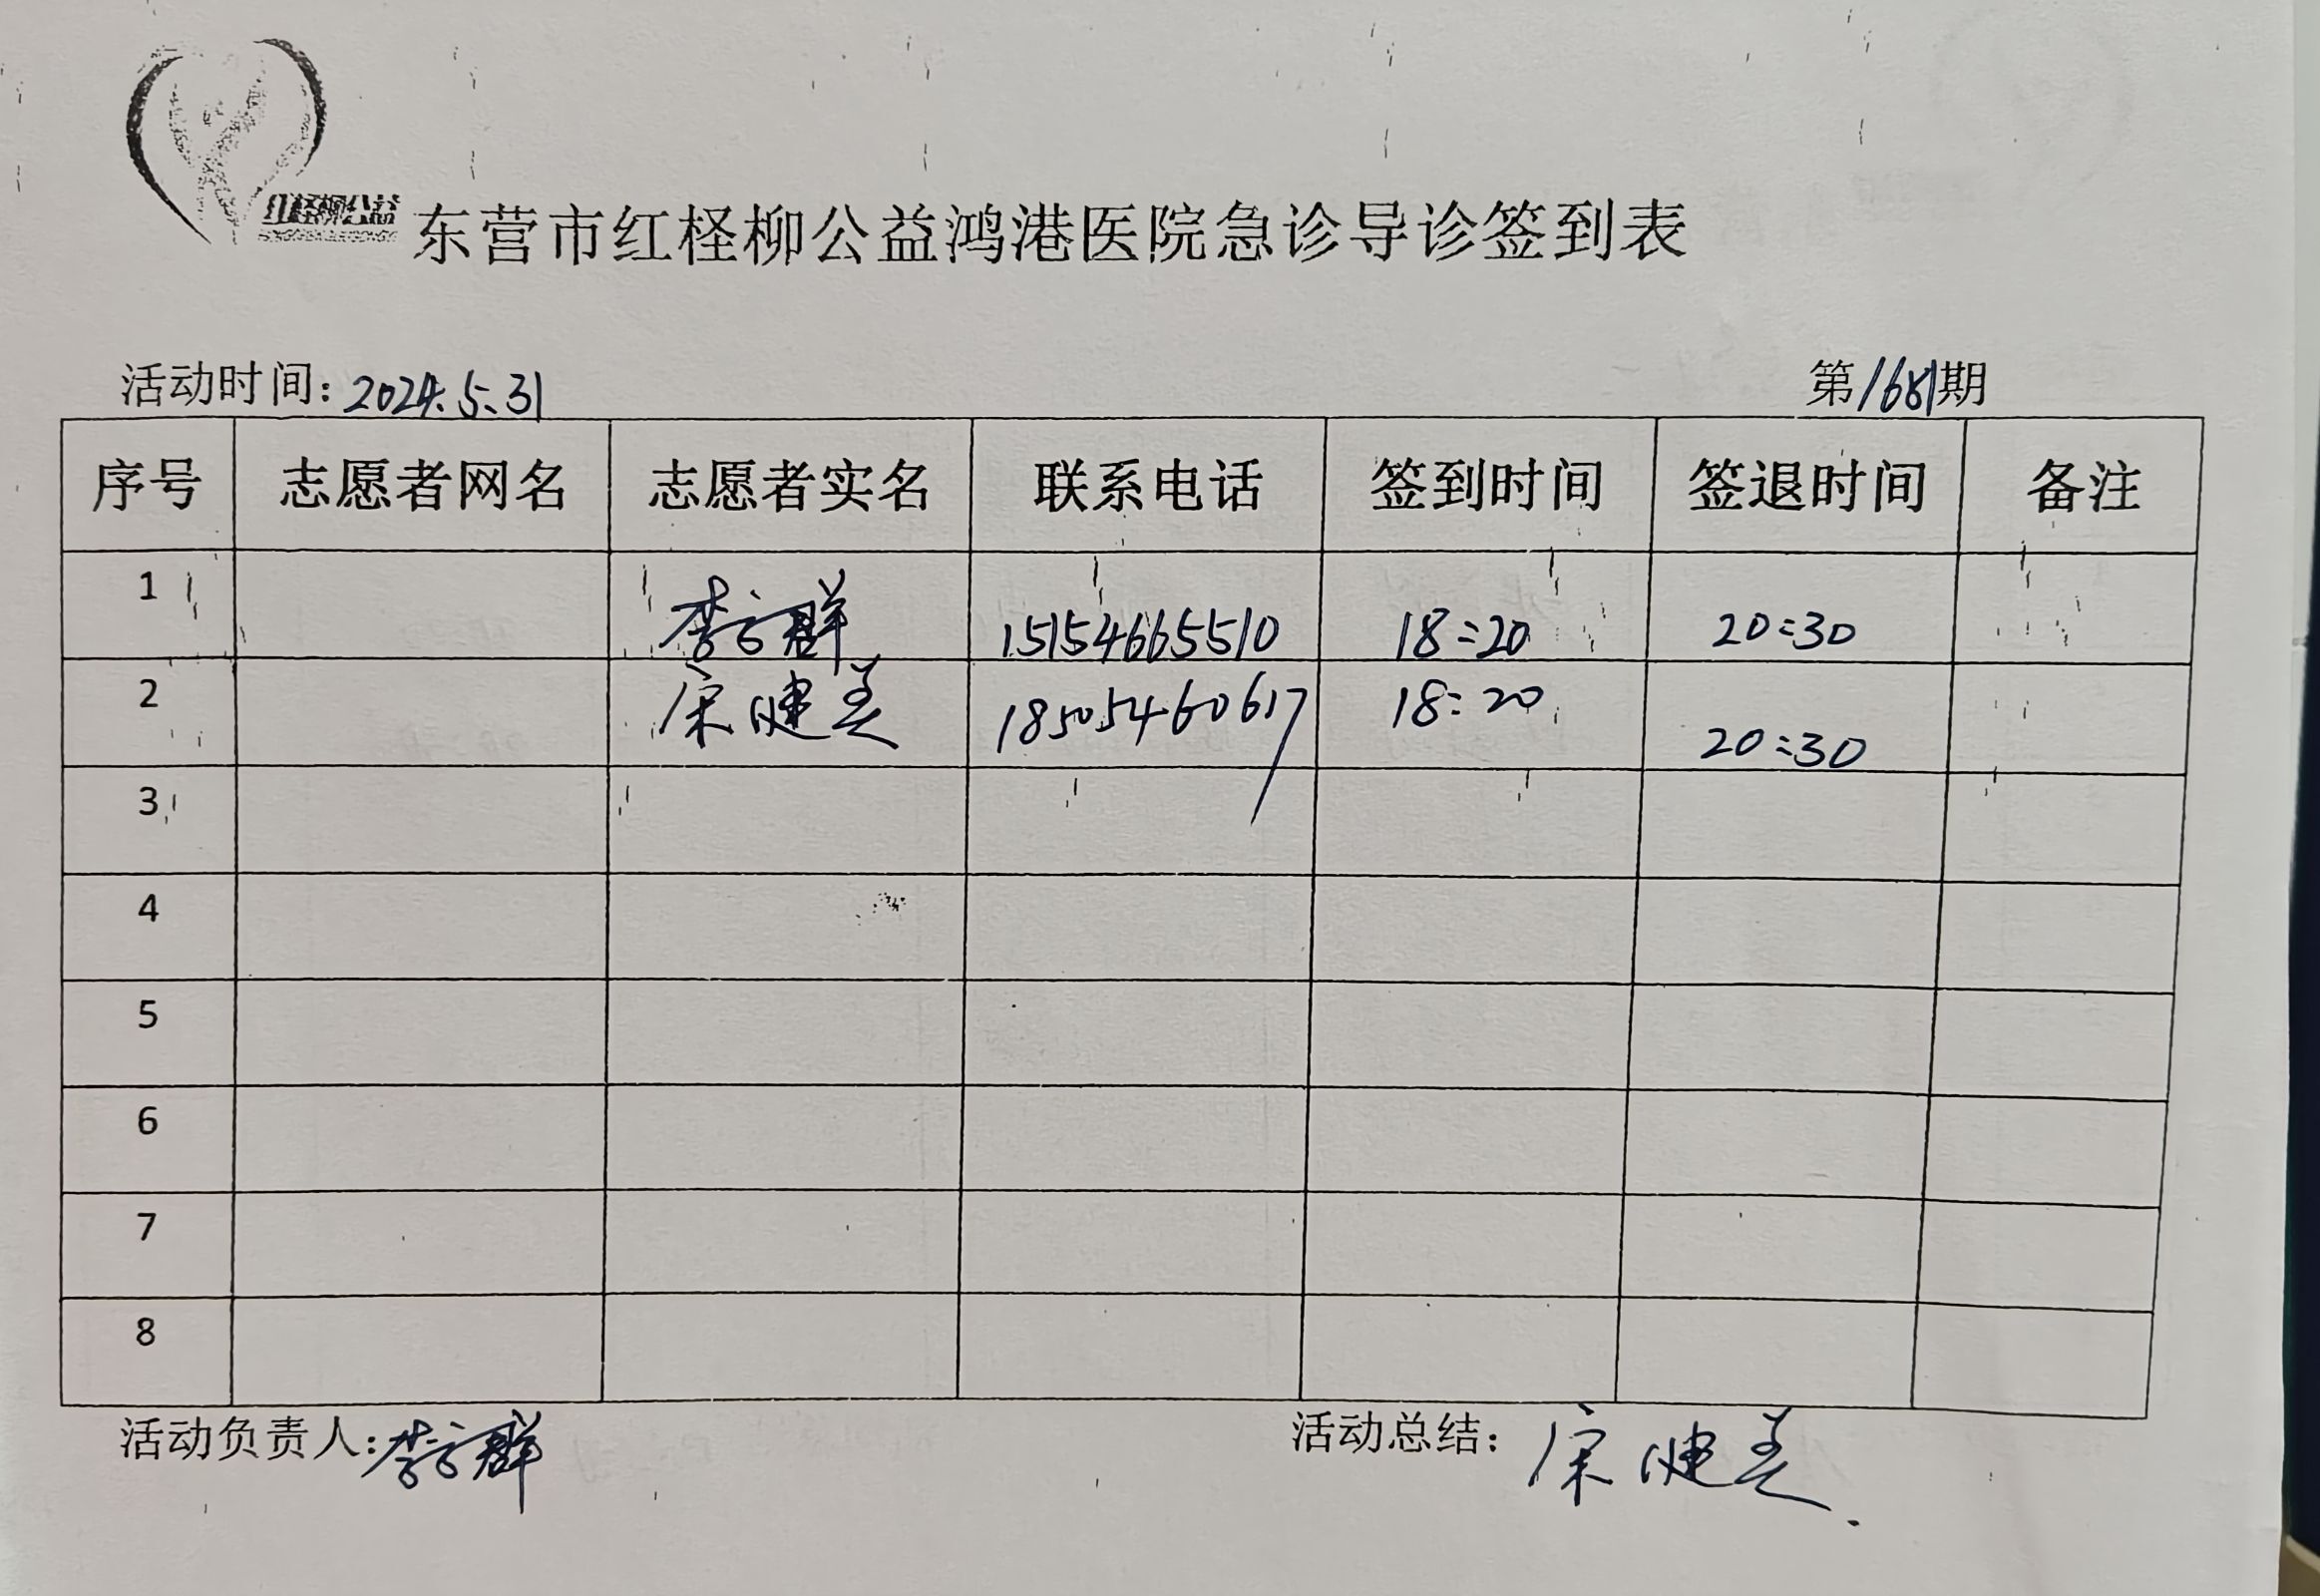 红柽柳公益
东营市红柽柳公益鸿港医院急诊导诊签到表
活动时间: 2024.5.31 第1681期
序号 志愿者网名 志愿者实名 联系电话 签到时间 签退时间 备注
1 李方群 15154665510 18:20 20:30
2 宋健美 18505460617 18:20 20:30
3
4
5
6
7
8
活动负责人: 李方群 活动总结: 宋健美